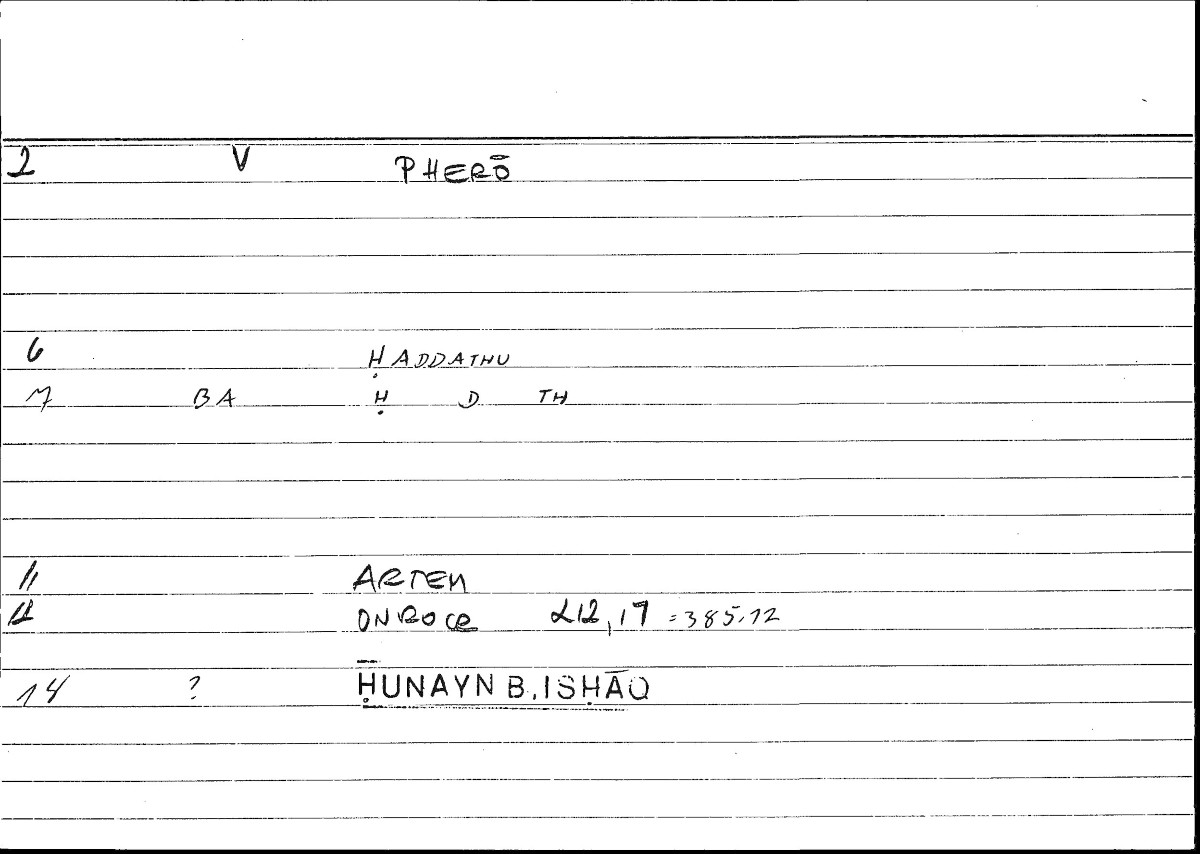 2 V PHERŌ
6 ḤADDATHU
7 BA Ḥ D TH
11 ARTEM
12 ONIROCR 212,17 =385.12
14 ? ḤUNAYN B. ISḤĀQ